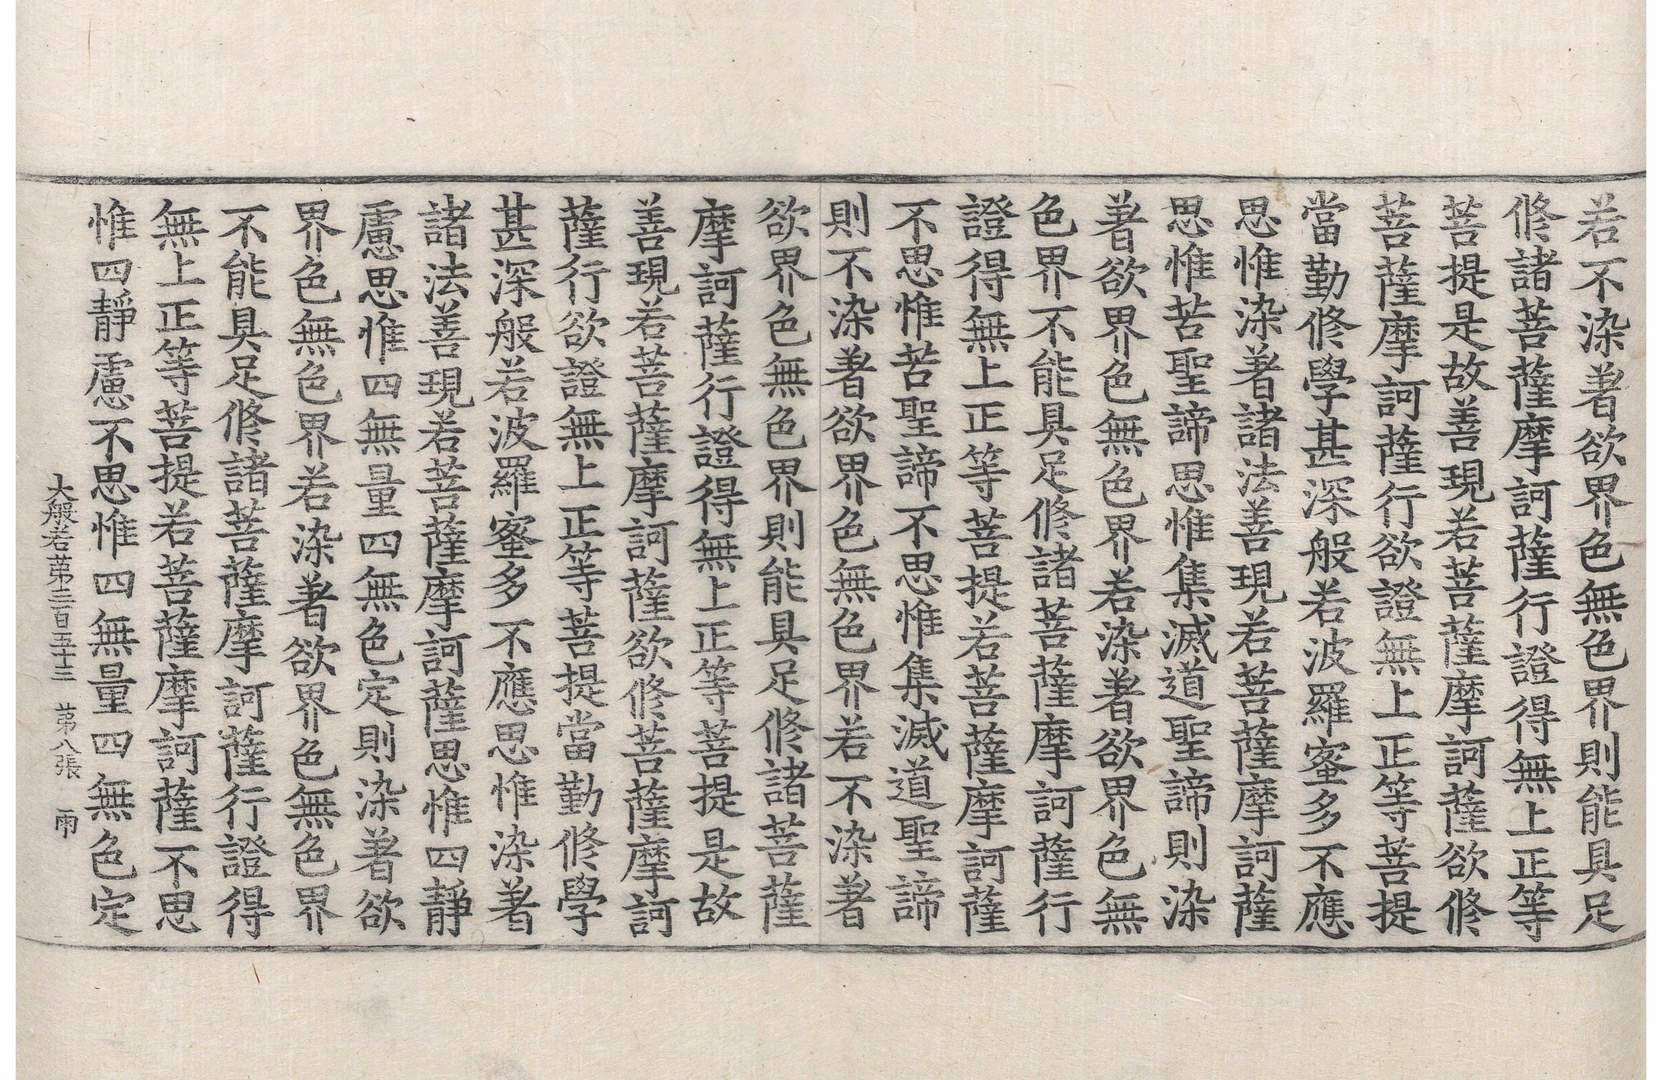 若不染著欲界色無色界則能具足
修諸菩薩摩訶薩行證得無上正等
菩提是故善現若菩薩摩訶薩欲修
菩薩摩訶薩行欲證無上正等菩提
當勤修學甚深般若波羅蜜多不應
思惟染著諸法善現若菩薩摩訶薩
思惟苦聖諦思惟集滅道聖諦則染
著欲界色無色界若染著欲界色無
色界不能具足修諸菩薩摩訶薩行
證得無上正等菩提若菩薩摩訶薩
不思惟苦聖諦不思惟集滅道聖諦
則不染著欲界色無色界若不染著
欲界色無色界則能具足修諸菩薩
摩訶薩行證得無上正等菩提是故
善現若菩薩摩訶薩欲修菩薩摩訶
薩行欲證無上正等菩提當勤修學
甚深般若波羅蜜多不應思惟染著
諸法善現若菩薩摩訶薩思惟四靜
慮思惟四無量四無色定則染著欲
界色無色界若染著欲界色無色界
不能具足修諸菩薩摩訶薩行證得
無上正等菩提若菩薩摩訶薩不思
惟四靜慮不思惟四無量四無色定
大般若第三百五十三 第八張 雨